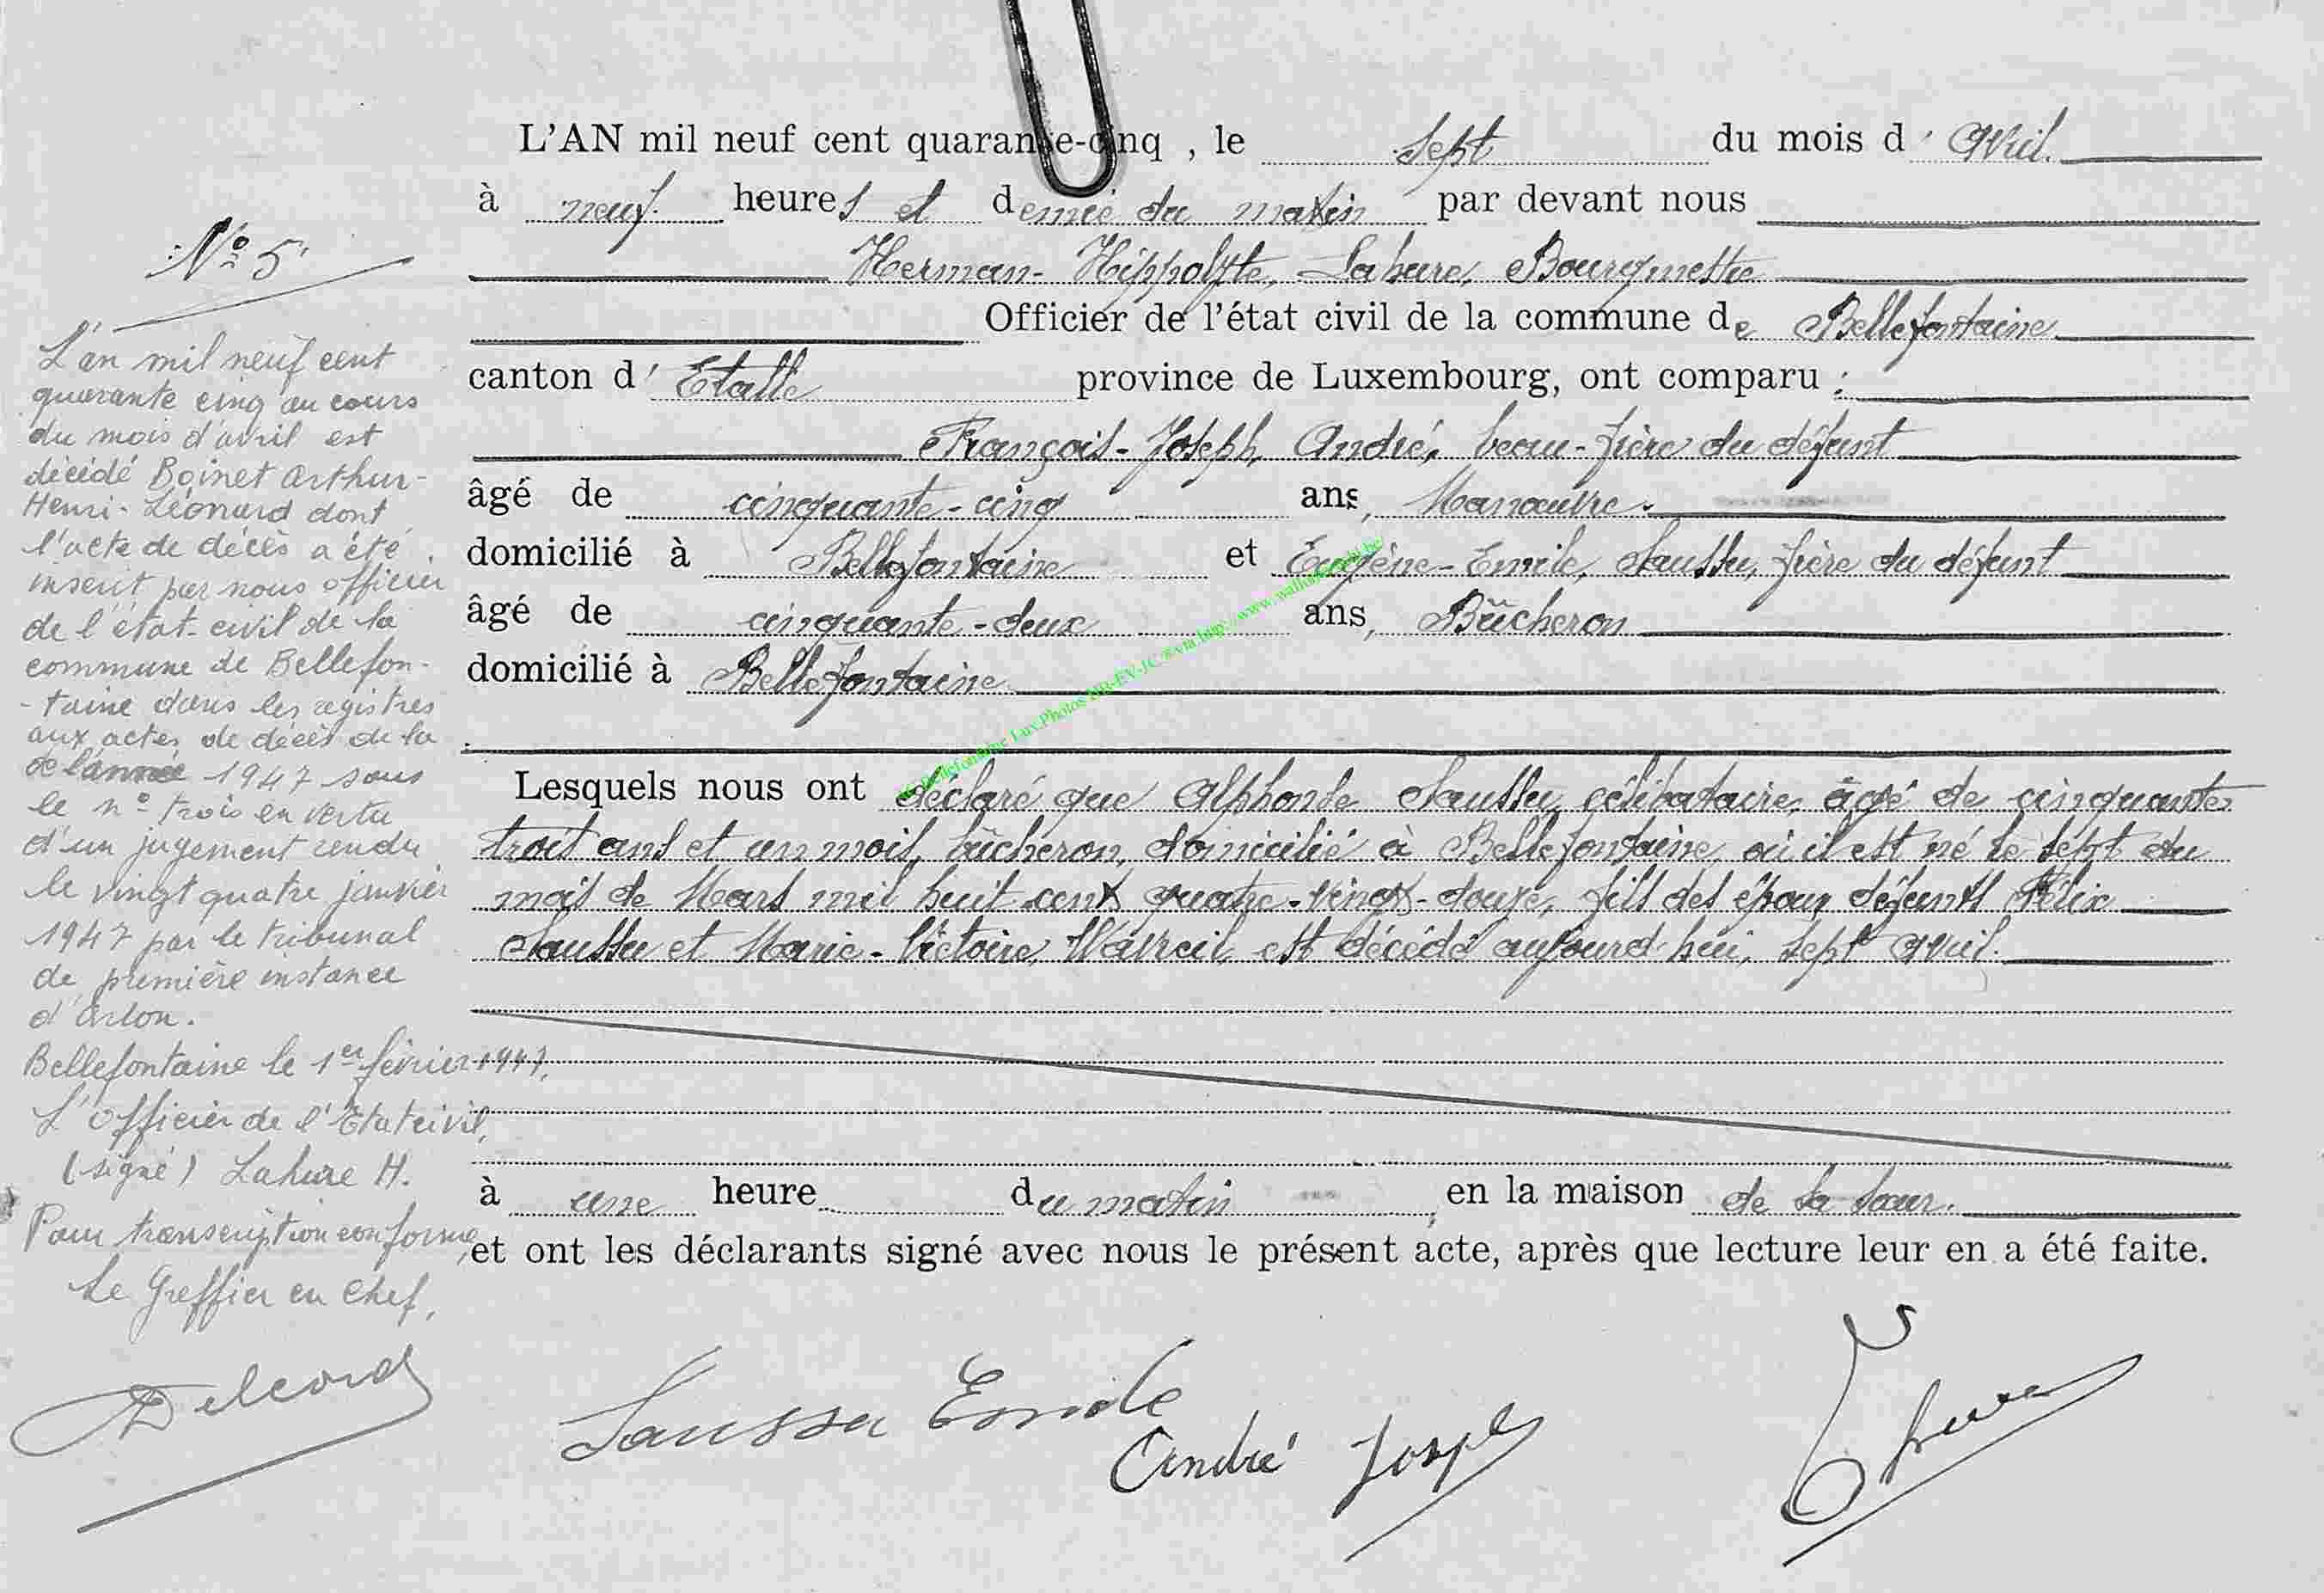 L'AN mil neuf cent quarante-cinq , le sept du mois d' Avril.
à neuf heures et demie du matin par devant nous
Herman-Hippolyte, Lahure, Bourgmestre
Officier de l'état civil de la commune de Bellefontaine
canton d' Etalle province de Luxembourg, ont comparu :
François-Joseph, André, beau-frère du défunt
âgé de cinquante-cinq ans, Manœuvre.
domicilié à Bellefontaine et Eugène-Emile, Saussu, frère du défunt
âgé de cinquante-deux ans, Bûcheron
domicilié à Bellefontaine
Lesquels nous ont déclaré que Alphonse Saussu, célibataire, âgé de cinquante
trois ans et un mois, bûcheron, domicilié à Bellefontaine, où il est né le sept du
mois de Mars mil huit cent quatre-vingt-douze, fils des époux défunts Félix
Saussu et Marie-Victoire, Wavreil, est décédé aujourd'hui, sept avril.
à une heure du matin , en la maison de sa sœur.
et ont les déclarants signé avec nous le présent acte, après que lecture leur en a été faite.
Saussu Emile
André Joseph
Nº 5
L'an mil neuf cent
quarante cinq au cours
du mois d'avril est
décédé Boinet Arthur-
Henri-Léonard dont
l'acte de décès a été
inscrit par nous officier
de l'état-civil de la
commune de Bellefon-
-taine dans les registres
aux actes de décès de la
de l'année 1947 sous
le nº trois en vertu
d'un jugement rendu
le vingt quatre janvier
1947 par le tribunal
de première instance
d'Arlon.
Bellefontaine le 1er février 1947,
L'officier de l'Etat civil,
(signé) Lahure H.
Pour transcription conforme,
Le Greffier en Chef,
Bellefontaine Lux. Photos via http://www.